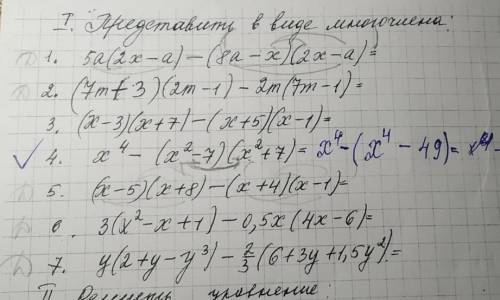 I. Представить в виде многочлена:
1. 5a(2x-a)-(8a-x)(2x-a)=
2. (7m-3)(2m-1)-2m(7m-1)=
3. (x-3)(x+7)-(x+5)(x-1)=
4. x⁴-(x²-7)(x²+7)= x⁴-(x⁴-49)= x⁴-
5. (x-5)(x+8)-(x+4)(x-1)=
6. 3(x²-x+1)-0,5x(4x-6)=
7. y(2+y-y³)-2/3(6+3y+1,5y²)=
II. Решить уравнение: